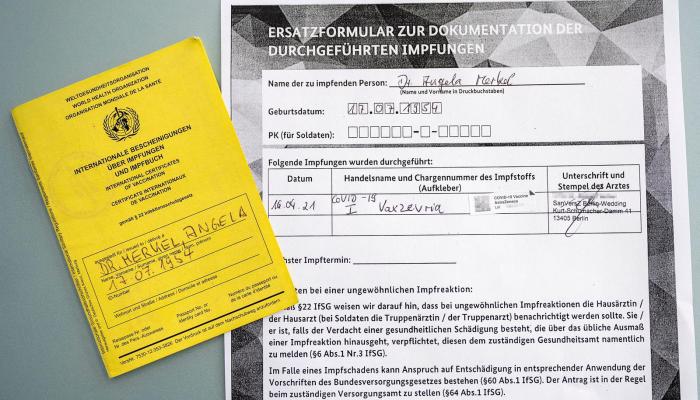 WELTGESUNDHEITSORGANISATION
WORLD HEALTH ORGANIZATION
ORGANISATION MONDIALE DE LA SANTÉ
INTERNATIONALE BESCHEINIGUNGEN
ÜBER IMPFUNGEN
UND IMPFBUCH
INTERNATIONAL CERTIFICATES
OF VACCINATION
CERTIFICATS INTERNATIONAUX
DE VACCINATION
gemäß § 22 Infektionsschutzgesetz
ausgestellt für / issued to / délivré à
DR. MERKEL, ANGELA
Name, Vorname / Surname, given name / Nom, prénom
17 07. 1954
ID.Number
Wohnort und Straße / Address / Domicile et adresse
Reisepass-Nr. oder
Nr. des Pers.-Ausweises
Passport No. or
Identity card No.
Numéro du passeport ou
de la carte d'identité
Der Vordruck ist auf dem Nachschubweg anzufordern.
ERSATZFORMULAR ZUR DOKUMENTATION DER
DURCHGEFÜHRTEN IMPFUNGEN
Name der zu impfenden Person: Dr. Angela Merkel
(Name und Vorname in Druckbuchstaben)
Geburtsdatum: 17.07.1954
PK (für Soldaten):
Folgende Impfungen wurden durchgeführt:
Datum
Handelsname und Chargennummer des Impfstoffs
(Aufkleber)
Unterschrift und
Stempel des Arztes
16.04.21
COVID-19
I Vaxzevria
COVID-19 Vaccine
AstraZeneca
Lot
SanVersZ Berlin-Wedding
Kurt-Schumacher-Damm 41
13405 Berlin
hster Impftermin:
ten bei einer ungewöhnlichen Impfreaktion:
§22 IfSG weisen wir darauf hin, dass bei ungewöhnlichen Impfreaktionen die Hausärztin /
der Hausarzt (bei Soldaten die Truppenärztin / der Truppenarzt) benachrichtigt werden sollte. Sie /
er ist, falls der Verdacht einer gesundheitlichen Schädigung besteht, die über das übliche Ausmaß
einer Impfreaktion hinausgeht, verpflichtet, diesen dem zuständigen Gesundheitsamt namentlich
zu melden (§6 Abs.1 Nr.3 IfSG).
Im Falle eines Impfschadens kann Anspruch auf Entschädigung in entsprechender Anwendung der
Vorschriften des Bundesversorgungsgesetzes bestehen (§60 Abs.1 IfSG). Der Antrag ist in der Regel
beim zuständigen Versorgungsamt zu stellen (§64 Abs.1 IfSG).